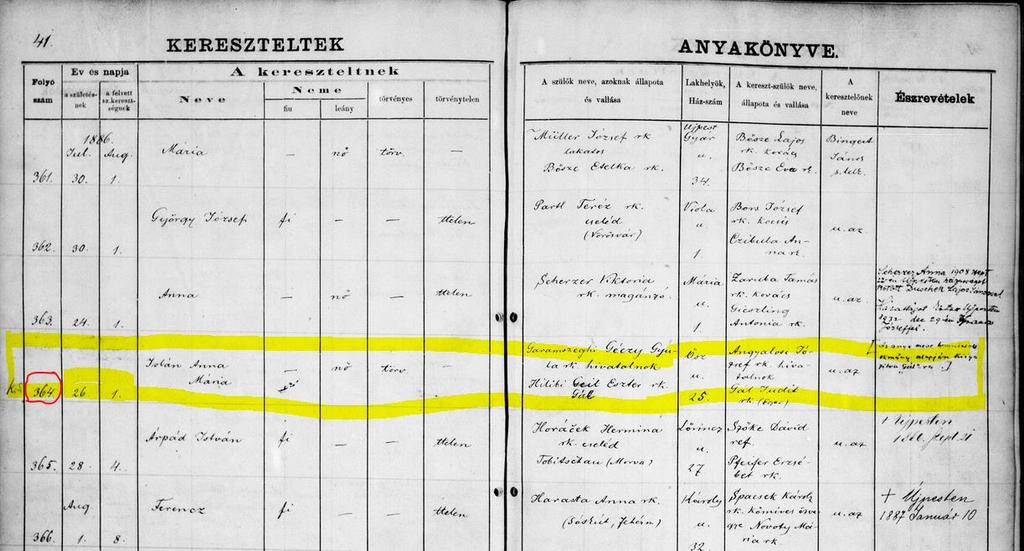 41.
KERESZTELTEK
ANYAKÖNYVE.
Folyó szám
Ev és napja
a születésnek
a felvett sz. keresztségnek
A kereszteltnek
Neve
Neme
fiu
leány
törvényes
törvénytelen
A szülők neve, azoknak állapota és vallása
Lakhelyök, Ház-szám
A kereszt-szülők neve, állapota és vallása
A keresztelőnek neve
Észrevételek
1886.
Jul. Aug.
361. 30. 1.
Mária
— nő törv. —
Müller József rk
lakatos
Bősze Etelka rk.
Ujpest
Gyár
u.
34.
Bősze Lajos
rk. kovács
Bősze Eva rk.
Bingert
János
s. lelk.
362. 30. 1.
György József
fi — — ttelen
Partl Teréz rk.
cseléd
(Vörösvár)
Viola
u.
1.
Bors József
rk. kocsis
Czibula An-
na rk.
u. az
363. 24. 1.
Anna
— nő — ttelen
Scherzer Viktoria
rk. magánzó.
Mária
u.
1.
Zaruba Tamás
rk. kovács
Gieszling
Antonia rk.
u. az
Scherzer Anna 1908
364. 26. 1.
Istán Anna
Mária
— nő törv. —
Garamszeghi Géczy Gyu-
la rk. hivatalnok
Hilibi Geil Eszter rk.
Gál
Ősz
u.
25
Angyalosi Jó-
zsef rk. hiva-
talnok
Gál Judit
rk. (Eger)
u. az
365. 28. 4.
Árpád István
fi — — ttelen
Horáček Hermina
rk. cseléd
Tobitschau (Morva)
Lőrincz
u.
27
Szőke Dávid
ref.
Pfeifer Erzsé-
bet rk.
u. az
† Ujpesten
Aug.
366. 1. 8.
Ferencz
fi — — ttelen
Harasta Anna rk.
(Sóskút, Fehérm)
Károly
u.
32.
Spacsek Károly
rk. kőmives
Novotny Má-
ria rk.
u. az
† Újpesten
1887 Január 10